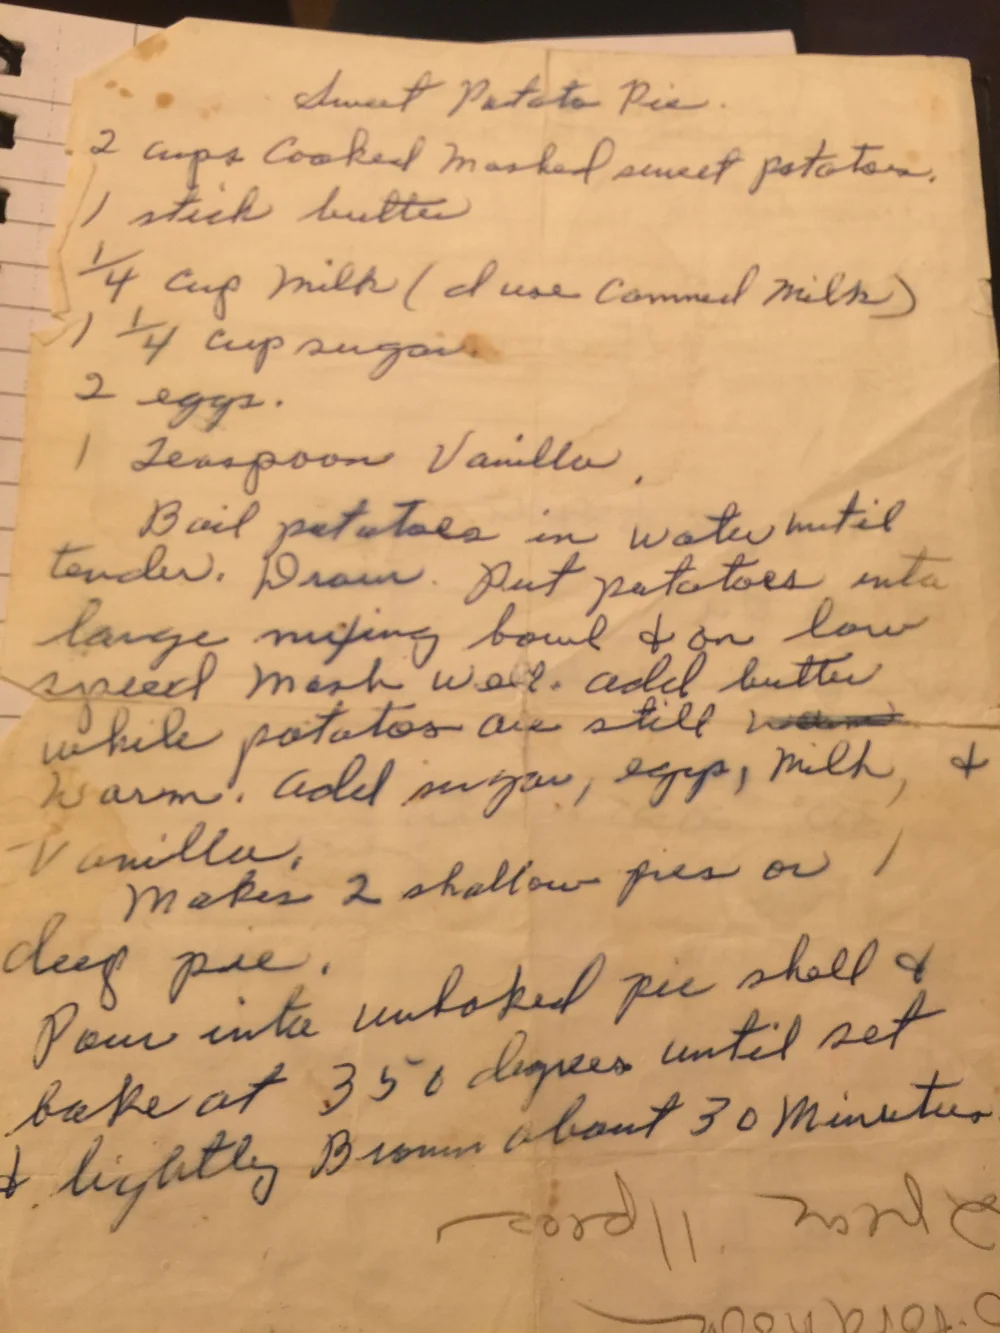 Sweet Potato Pie.
2 cups Cooked Mashed sweet potatoes.
1 stick butter
1/4 cup Milk (I use Canned Milk)
1 1/4 cup sugar.
2 eggs.
1 Teaspoon Vanilla.
Boil potatoes in water until
tender. Drain. Put potatoes into
large mixing bowl & on low
speed Mash well. add butter
while potatoes are still warm
Warm. add sugar, eggs, Milk, &
Vanilla.
Makes 2 shallow pies or 1
deep pie.
Pour into unbaked pie shell &
bake at 350 degrees until set
& lightly Brown about 30 Minutes